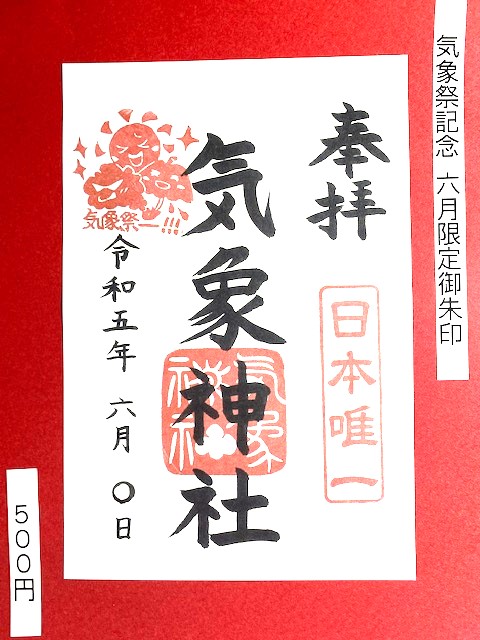 気象祭記念 六月限定御朱印
奉拝
日本唯一
気象神社
気象
神社
気象祭ー!!!
令和五年 六月 〇日
500円